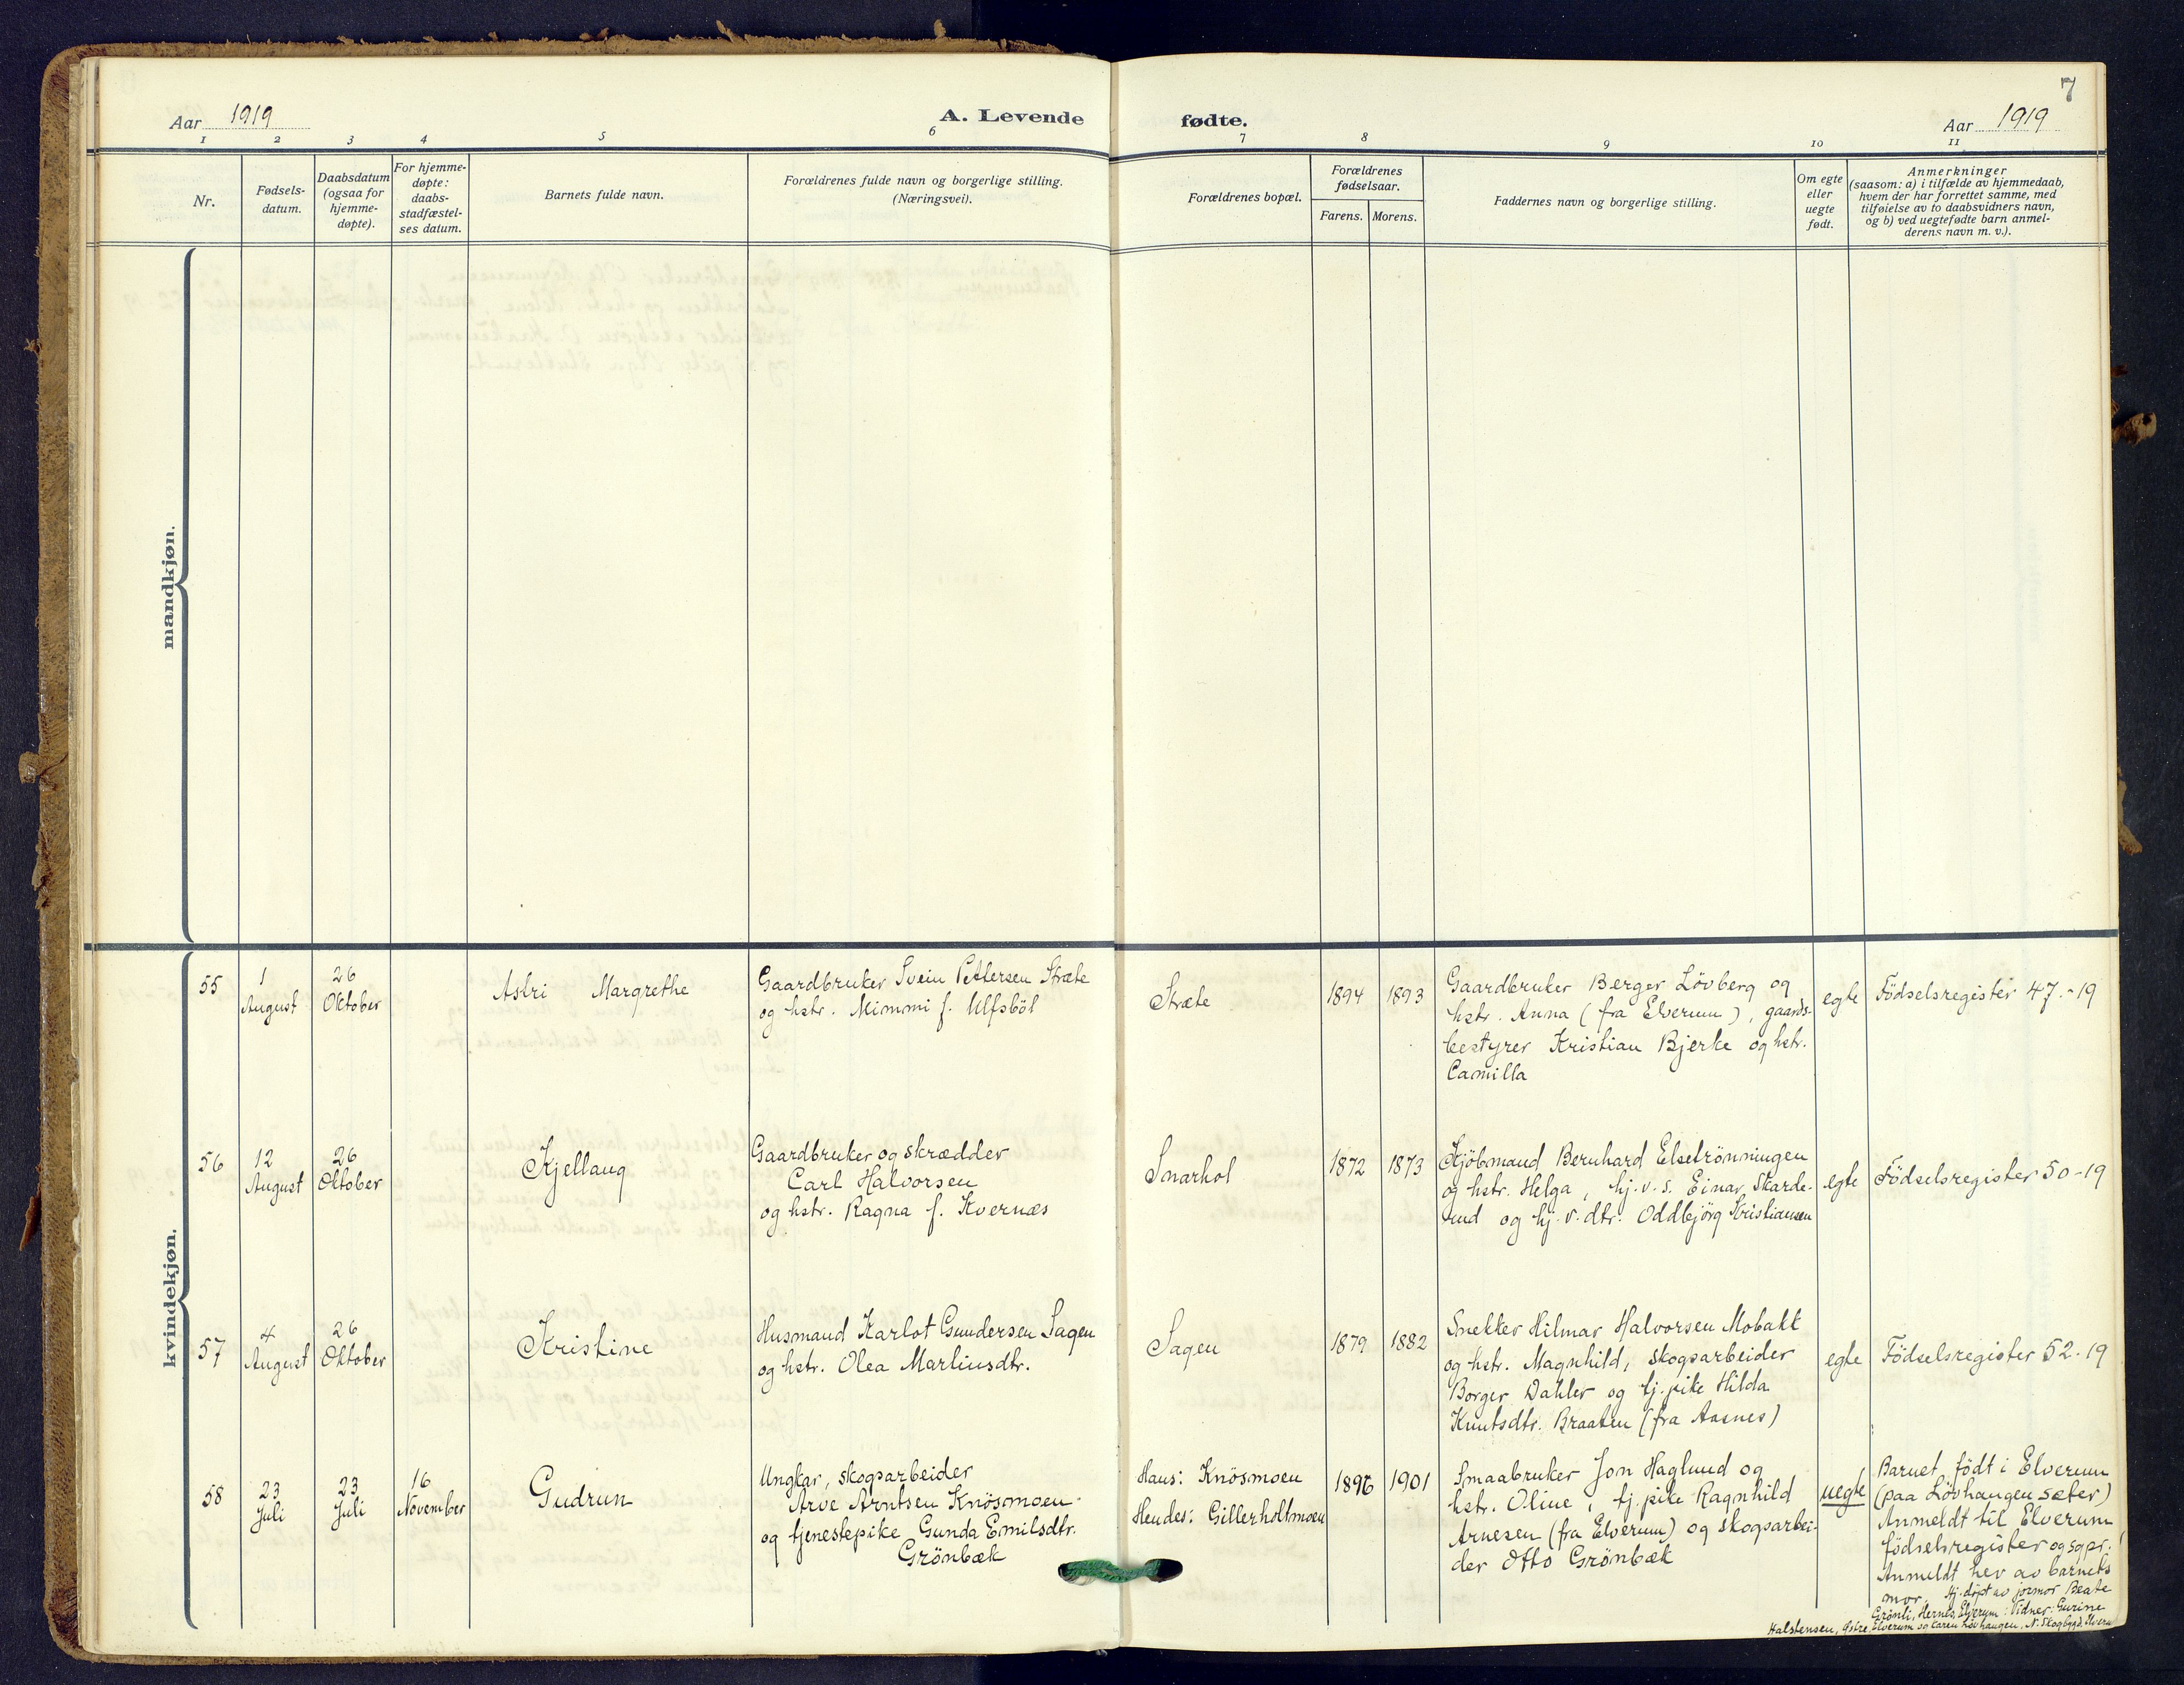 7
Aar 1919
A. Levende fødte.
Aar 1919
1 2 3 4 5 6 7 8 9 10 11
Nr.
Fødsels-
datum.
Daabsdatum
(ogsaa for
hjemme-
døpte).
For hjemme-
døpte:
daabs-
stadfæstel-
ses datum.
Barnets fulde navn.
Forældrenes fulde navn og borgerlige stilling.
(Næringsvei).
Forældrenes bopæl.
Forældrenes
fødselsaar.
Farens. Morens.
Faddernes navn og borgerlige stilling.
Om egte
eller
uegte
født.
Anmerkninger
(saasom: a) i tilfælde av hjemmedaab,
hvem der har forrettet samme, med
tilføielse av to daabsvidners navn,
og b) ved uegtefødte barn anmel-
derens navn m. v.).
mandkjøn.
kvindekjøn.
55
1
August
26
Oktober
Astri Margrethe
Gaardbruker Svein Pettersen Stræte
og hstr. Mimmi f. Ulfsböl
Stræte
1894
1893
Gaardbruker Berger Lövberg og
hstr. Anna (fra Elverum), gaards-
bestyrer Kristian Bjerke og hstr.
Camilla
egte
Födselsregister 47.-19
56
12
August
26
Oktober
Kjellaug
Gaardbruker og skrædder
Carl Halvorsen
og hstr. Ragna f. Kvernæs
Snarhol
1872
1873
Kjöbmand Bernhard Elsetrönningen
og hstr. Helga, hj.v.s. Einar Skarde-
rud og hj.v.dtr. Oddbjörg Kristiansen
egte
Födselsregister 50-19
57
4
August
26
Oktober
Kristine
Husmand Karlot Gundersen Sagen
og hstr. Olea Martinsdtr.
Sagen
1879
1882
Snekker Hilmar Halvorsen Mobakk
og hstr. Magnhild, skogsarbeider
Borger Dahler og tj.pike Hilda
Knutsdtr. Braaten (fra Aasnes)
egte
Födselsregister 52-19
58
23
Juli
23
Juli
16
November
Gudrun
Ungkar, skogsarbeider
Arve Arntsen Knösmoen
og tjenestepike Gunda Emilsdtr.
Grönbæk
Hans: Knösmoen
Hendes: Gillerholtmoen
1896
1901
Smaabruker Jon Haglund og
hstr. Oline, tj.pike Ragnhild
Arnesen (fra Elverum) og skogsarbei-
der Otto Grönbæk
uegte
Barnet födt i Elverum
(paa Lövhaugen sæter)
Anmeldt til Elverum
födselsregister og sgpr.
Anmeldt her av barnets
mor. Hj.döpt av jormor Beate
Grönli, Hernes, Elverum: Vidner: Gurine
Halstensen, Østre Elverum og Karen Lövhaugen. N. Skogbygd. Elverum